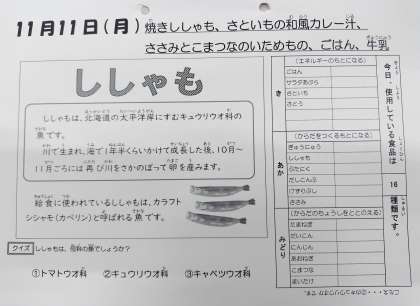 11月11日(月) 焼きししゃも、さといもの和風カレー汁、
ささみとこまつなのいためもの、ごはん、牛乳
ししゃも
ししゃもは、北海道の太平洋岸にすむキュウリウオ科の
魚です。
川で生まれ、海で1年半くらいかけて成長した後、10月〜
11月ごろには再び川をさかのぼって卵を産みます。
給食に使われているししゃもは、カラフト
シシャモ(カペリン)と呼ばれる魚です。
クイズ ししゃもは、何科の魚でしょうか?
①トマトウオ科 ②キュウリウオ科 ③キャベツウオ科
き
(エネルギーのもとになる)
ごはん
サラダあぶら
さといも
さとう
あか
(からだをつくるもとになる)
ぎゅうにゅう
ししゃも
ぶたにく
だしこんぶ
けずりぶし
ささみ
みどり
(からだのちょうしをととのえる)
たまねぎ
だいこん
にんじん
あおねぎ
こまつな
まいたけ
今日、使用している食品は
16
種類です。